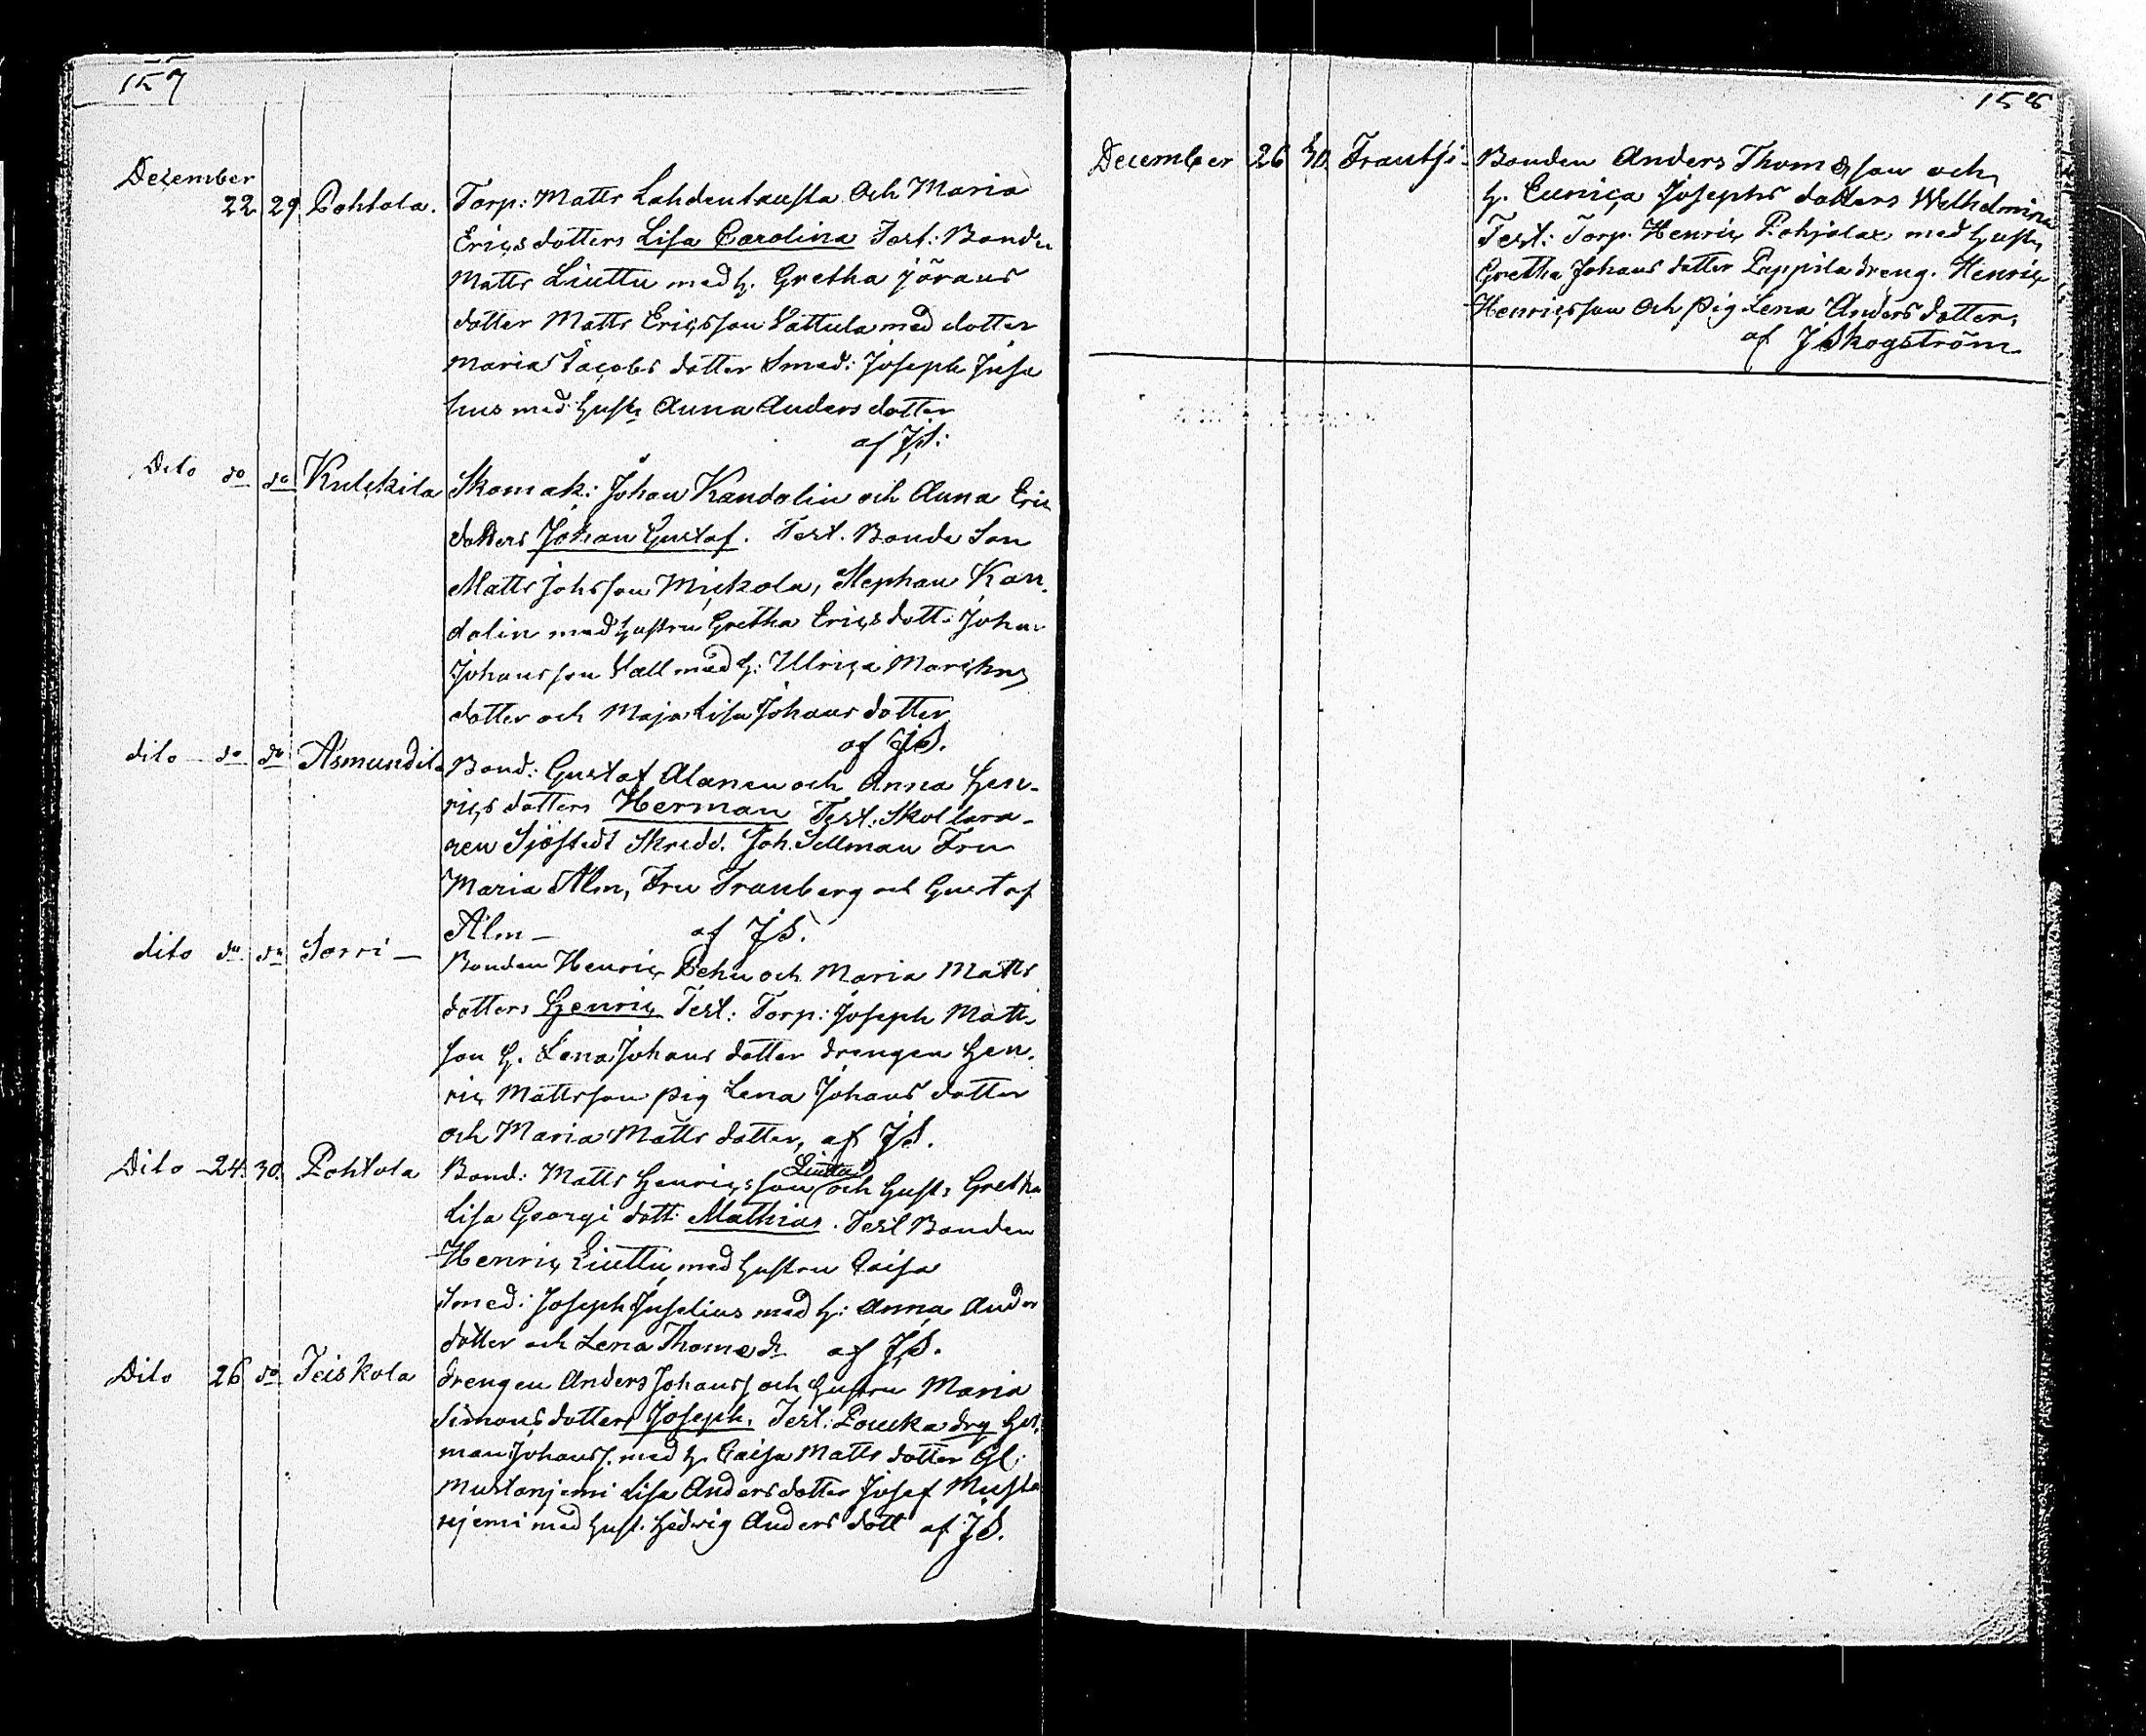 157
December
22 29 Pohtola. Torp: Matts Lahdentausta Och Maria
Erics dotters Lisa Carolina Test: Bonde
Matts Liuttu med h. Gretha Jörans
dotter Matts Ericsson Vattula med dotter
Maria Jacobs dotter Smed: Joseph Juse
lius med hust Anna Anders dotter
af JS:
Dito do do Kulckila Skomak: Johan Kandolin och Anna Eric
dotters Johan Gustaf. Test. Bonde Son
Matts Johsson Mickola, Stephan Kan-
dolin med hustru Gretha Erics dott: Johan
Johansson Vall med h: Ulrica
dotter och Maja Lisa Johans dotter
af JS.
dito do do Åsmundila Bond: Gustaf Alanen och Anna Hen-
rics dotters Herman Test: Skollära-
ren Sjöstedt Skredd. Joh. Sellman Fru
Maria Alm, Fru Tranberg och Gustaf
Alm – af JS.
dito do do Sorri – Bonden Henric Pehu och Maria Matts
dotters Henric Test: Torp: Joseph Matts
son h. Lena Johans dotter drengen Hen-
ric Mattsson pig Lena Johans dotter
och Maria Matts dotter, af JS.
Dito 24. 30. Pohtola Bond: Matts Henricsson Liuttu och hust: Gretha
Lisa Georgi dott: Mathias. Test Bonden
Henric Liuttu med hustru Caisa
Smed: Joseph Juselius med h: Anna Anders
dotter och Lena Thome dr af JS.
Dito 26 do Teiskola drengen Anders Johanss och hustru Maria
Simons dotters Joseph. Test: drg Her-
man Johanss. med h. Caisa Matts dotter
Mustanjemi Lisa Anders dotter Josef Musta
njemi med hust. Hedvig Anders dott af JS.
158
December 26 30. Frantsi- Bonden Anders Thomesson och
h. Eunica Josephs dotters Wilhelmina
Test: Torp. Henric Pohjolax med hustr
Gretha Johans dotter Pappila dreng. Henric
Henricsson och pig Lena Anders dotter.
af J Skogström